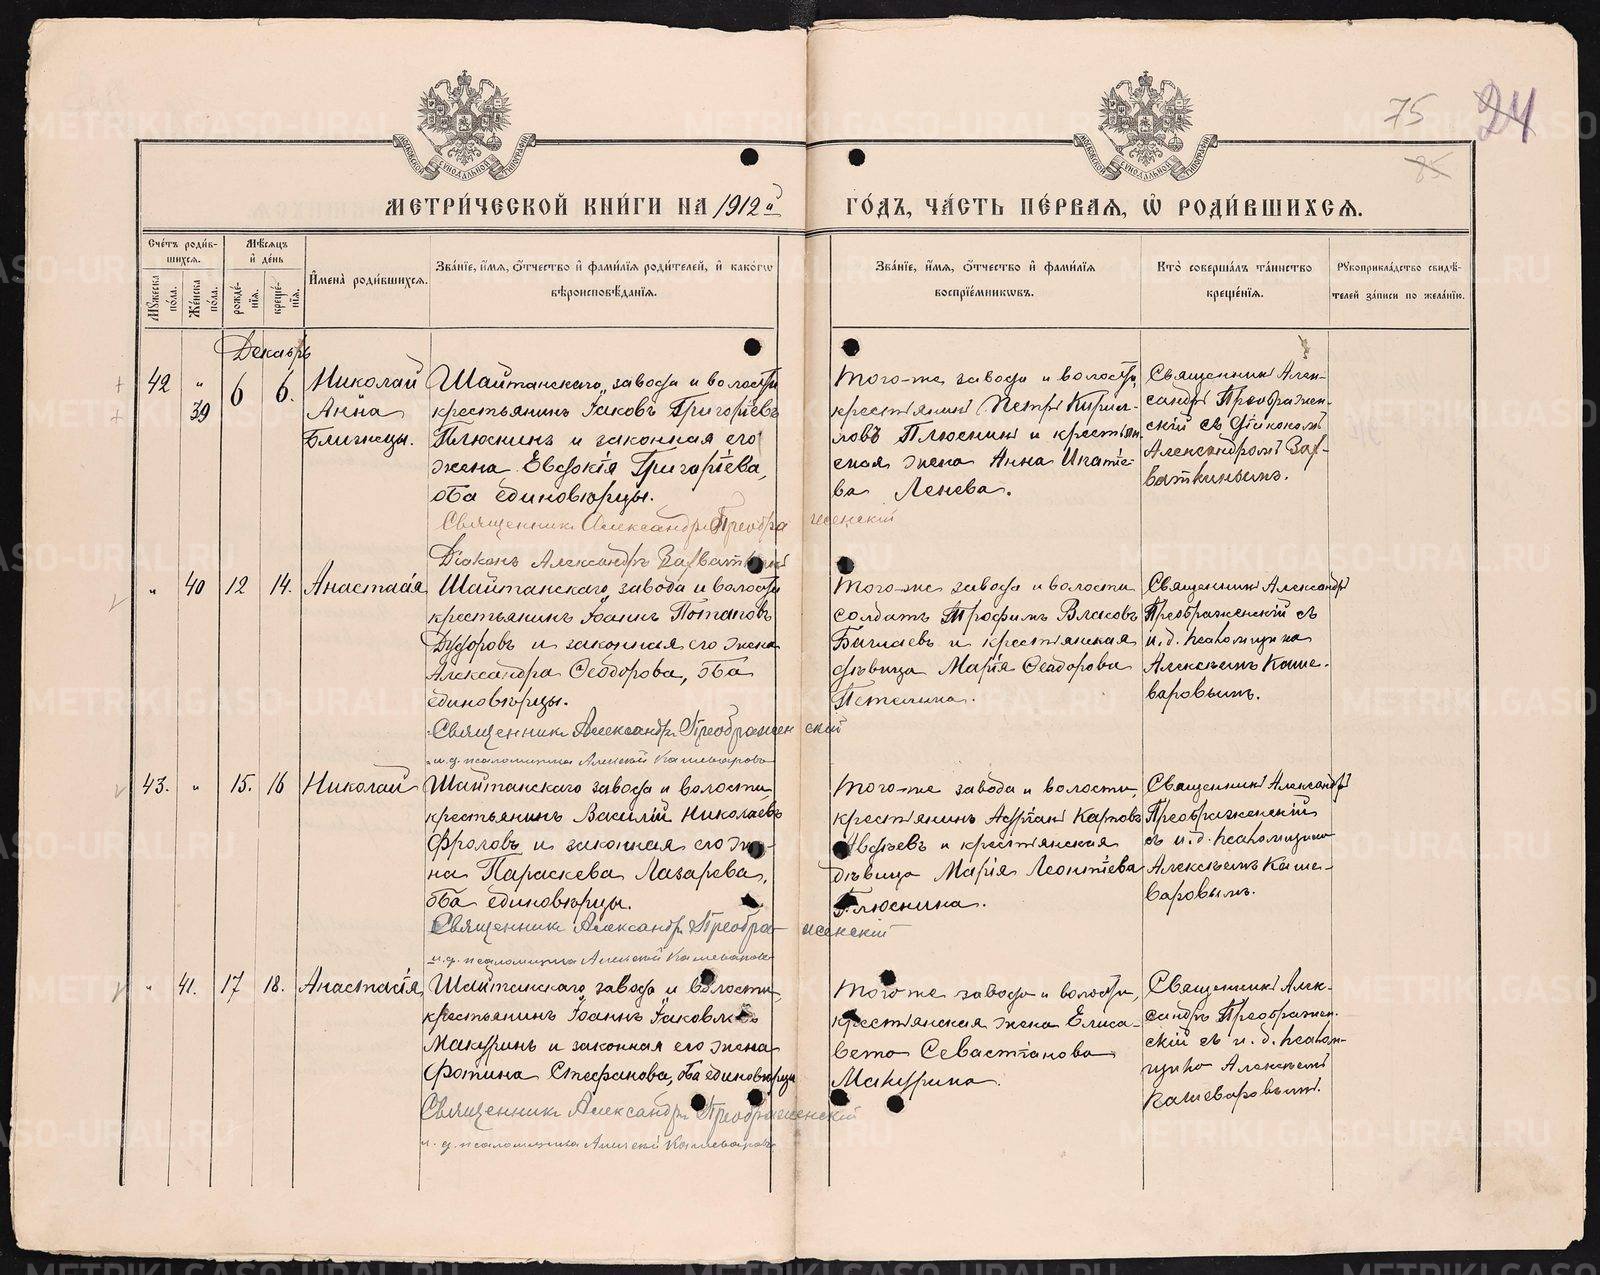 75 24
85
МОСКОВСКОЙ СѴНОДАЛЬНОЙ ТИПОГРАФІИ
МОСКОВСКОЙ СѴНОДАЛЬНОЙ ТИПОГРАФІИ
МЕТРИ́ЧЕСКОЙ КНИ́ГИ НА 1912й
ГО́ДЪ, ЧА́СТЬ ПЕ́РВАЯ, Ѡ РОДИ́ВШИХСѦ.
Сче́тъ роди́в-
шихсѧ.
Мꙋ́жеска
по́ла.
Же́нска
по́ла.
Мѣ́сѧцъ
и҆ де́нь
рожде́-
нїѧ.
креще́-
нїѧ.
И҆мена̀ роди́вшихсѧ.
Зва́нїе, и҆́мѧ, ѻ҆́тчество и҆ фами́лїѧ роди́телей, и҆ како́гѡ
вѣроисповѣ́данїѧ.
Зва́нїе, и҆́мѧ, ѻ҆́тчество и҆ фами́лїѧ
воспрїе́мникѡвъ.
Кто̀ соверша́лъ та́инство
креще́нїѧ.
Рꙋкоприкла́дство свидѣ́-
телей за́писи по жела́нїю.
Декабрь
42 " 39 6 6.
Николай
Анна
Близнецы.
Шайтанскаго завода и волости
крестьянинъ Іаковъ Григоріевъ
Плюснинъ и законная его
жена Евдокія Григоріева,
оба единовѣрцы.
Священникъ Александръ Преображенскій
Діаконъ Александръ
Того-же завода и волости,
крестьянинъ Петръ Кирил-
ловъ Плюснинъ и крестьян-
ская жена Анна Игнатіе-
ва Ленева.
Священникъ Алек-
сандръ Преображен-
скій съ діакономъ
Александромъ Зах-
ваткинымъ.
" 40 12 14. Анастасія
Шайтанскаго завода и волости
крестьянинъ Іоаннъ Потаповъ
Дудоровъ и законная его жена
Александра Ѳеодорова, оба
единовѣрцы.
Священникъ Александръ Преображенскій
и.д. псаломщика Алексѣй Кашеваровъ
Того-же завода и волости
солдатъ Трофимъ Власовъ
и крестьянская
дѣвица Марія Ѳеодорова
Петелина.
Священникъ Александръ
Преображенскій съ
и.д. псаломщика
Алексѣемъ Каше-
варовымъ.
43. " 15. 16 Николай
Шайтанскаго завода и волости,
крестьянинъ Василій Николаевъ
Фроловъ и законная его же-
на Параскева Лазарева,
оба единовѣрцы.
Священникъ Александръ Преображенскій
и.д. псаломщика Алексѣй Кашеваровъ
Того-же завода и волости,
крестьянинъ Адріанъ Карповъ
Авдѣевъ и крестьянская
дѣвица Марія Леонтіева
Плюснина.
Священникъ Александръ
Преображенскій
съ и.д. псаломщика
Алексѣемъ Каше-
варовымъ.
" 41. 17 18. Анастасія
Шайтанскаго завода и волости,
крестьянинъ Іоаннъ Іаковлевъ
Макуринъ и законная его жена
Фотина Стефанова, оба единовѣрцы
Священникъ Александръ Преображенскій
и.д. псаломщика Алексѣй Кашеваровъ
Того-же завода и волости,
крестьянская жена Елиса-
вета Севастіанова
Макурина.
Священникъ Алек-
сандръ Преображен-
скій съ и.д. псалом-
щика Алексѣемъ
Кашеваровымъ.
METRIKI.GASO-URAL.RU